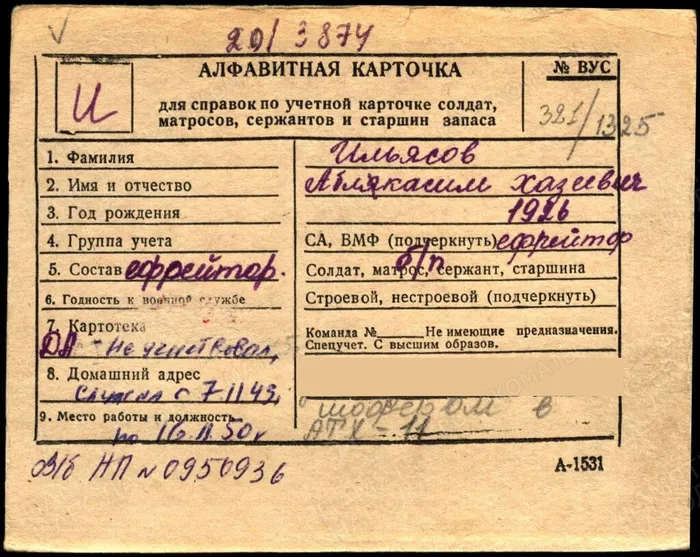 20/3874
АЛФАВИТНАЯ КАРТОЧКА
№ ВУС
И
для справок по учетной карточке солдат,
матросов, сержантов и старшин запаса
321/1325
1. Фамилия Ильясов
2. Имя и отчество Аблякасим Хазеевич
3. Год рождения 1926
4. Группа учета СА, ВМФ (подчеркнуть) ефрейтор
5. Состав ефрейтор. Солдат, матрос, сержант, старшина б/п
6. Годность к военной службе Строевой, нестроевой (подчеркнуть)
7. Картотека Команда № Не имеющие предназначения.
Спецучет. С высшим образов.
ДА - Не участвовал,
8. Домашний адрес
служил с 7.11.49.
шофером в
9. Место работы и должность
по 16.11.50г АТХ-11
В/б НП N 0950936
А-1531